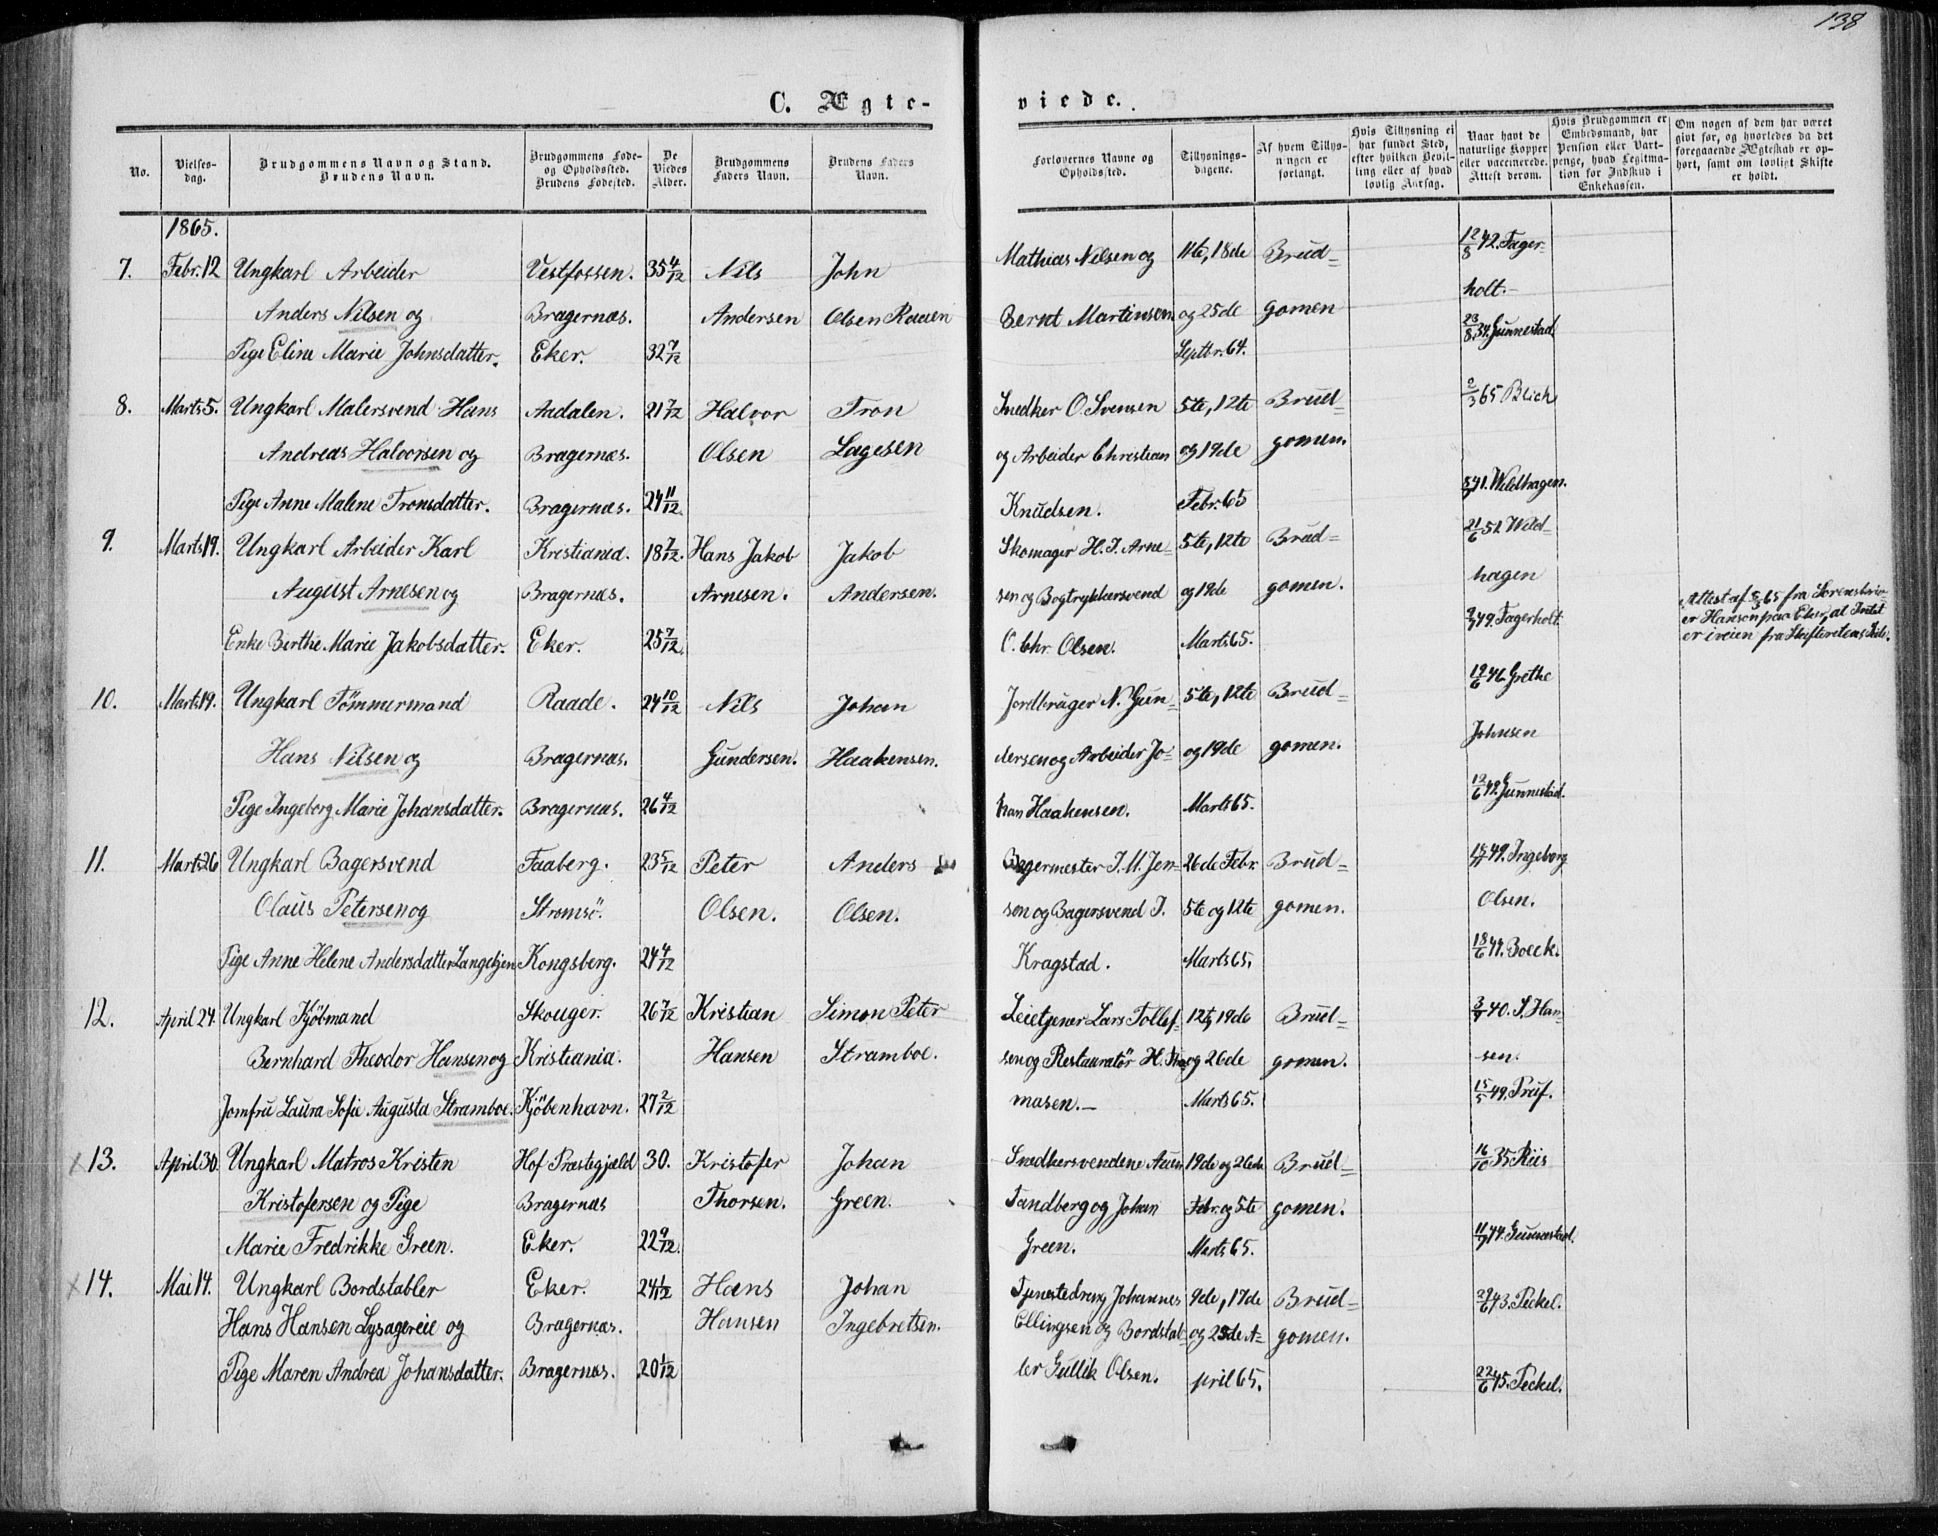 138
C. Ægte-
viede.
No.
Vielses-
dag.
Brudgommens Navn og Stand.
Brudens Navn.
Brudgommens Føde-
og Opholdssted.
Brudens Fødested.
De
Viedes
Alder.
Brudgommens
Faders Navn.
Brudens Faders
Navn.
Forlovernes Navne og
Opholdssted.
Tillysnings-
dagene.
Af hvem Tillys-
ningen er
forlangt.
Hvis Tillysning ei
har fundet Sted,
efter hvilken Bevil-
ling eller af hvad
lovlig Aarsag.
Naar havt de
naturlige Kopper
eller vaccinerede.
Attest derom.
Hvis Brudgommen er
Embedsmand, har
Pension eller Vart-
penge, hvad Legitima-
tion for Indskud i
Enkekassen.
Om nogen af dem har været
givt før, og hvorledes da det
foregaaende Ægteskab er op-
hørt, samt om lovligt Skifte
er holdt.
1865.
7. Febr. 12 Ungkarl Arbeider Vestfossen. 35 4/12 Nils John Mathias Nilsen og 11te, 18de Brud- 12/8 42. Fager-
Anders Nilsen og Bragernæs. Andersen Olsen Raaen Bernt Martinsen og 25de gomen holt.
Pige Eline Marie Johnsdatter. Eker. 32 7/12 Septbr. 64. 23/8 34. Gunnestad
8. Marts 5. Ungkarl Malersvend Hans Aadalen. 21 7/12 Halvor Tron Snedker O. Svensen 5te, 12te Brud- 2/3 65 Blich
Andreas Halvorsen og Bragernæs. Olsen Lagesen og Arbeider Christian og 19de gomen.
Pige Anne Malene Tronsdatter. Bragernæs. 24 11/12 Knudsen. Febr. 65 41. Weldhagen.
9. Marts 19. Ungkarl Arbeider Karl Kristiania. 18 7/12. Hans Jakob Jakob Skomager H. J. Arne- 5te, 12te Brud- 21/6 52 Weld-
August Arnesen og Bragernæs. Arnesen. Andersen. sen og Bogtrykkersvend og 19de gomen. hagen
Enke Berthe Marie Jakobsdatter. Eker. 25 7/12. O. Chr. Olsen. Marts 65. 49. Fagerholt. Attest af 5/3 65 fra
er Hansen paa Eker, at Intet
er iveien fra Skifterettens Side.
10. Marts 19. Ungkarl Tømmermand Raade. 24 10/12 Nils Johan Jordbruger N. Gun- 5te, 12te Brud- 19/6 46 Grethe
Hans Nilsen og Bragernæs. Gundersen. Haakensen. dersen og Arbeider Jo- og 19de gomen. Johnsen
Pige Ingeborg Marie Johansdatter. Bragernæs. 26 4/12 han Haakensen. Marts 65. 12/6 42. Gunnestad.
11. Marts 26 Ungkarl Bagersvend Faaberg. 23 5/12 Peter Anders Bagermester J. M. Jen- 26de Febr. Brud- 49. Ingeborg
Olaus Petersen og Strømsø. Olsen. Olsen. sen og Bagersvend J. 5te og 12te gomen. Olsen.
Pige Anne Helene Andersdatter Langekjen Kongsberg. 24 4/12 Kragstad. Marts 65. 18/6 44. Boeck.
12. April 24. Ungkarl Kjøbmand Skouger. 26 7/12 Kristian Simon Peter Leietjener Lars Tollef- 12te, 19de Brud- 40. S. Han-
Bernhard Theodor Hansen og Kristiania. Hansen Stramboe. sen og Restauratør H. Tho- og 26de gomen. sen.
Jomfru Laura Sofie Augusta Stramboe. Kjøbenhavn. 27 2/12 masen. Marts 65. 15/5 49.
x 13. April 30. Ungkarl Matros Kristen Hof Præstegjæld 30. Kristofer Johan Snedkersvendene 19de og 26de Brud- 16/10 35 Riis
Kristofersen og Pige Bragernæs Thorsen. Green. Sandberg og Johan Febr. og 5te gomen.
Marie Fredrikke Green. Eker. 22 9/12. Green. Marts 65. 44. Gunnestad.
x 14. Mai 14. Ungkarl Bordstabler Eker. 24 1/12 Hans Johan Tjenestedreng Johannes 9de, 17de Brud- 43. Peckel.
Hans Hansen Lysagereie og Bragernæs. Hansen Ingebretsen. Ellingsen og Bordstab- og 23de A- gomen.
Pige Maren Andrea Johansdatter. Bragernæs. 20 1/12 ler Gullik Olsen. pril 65. 22/6 45. Peckel.